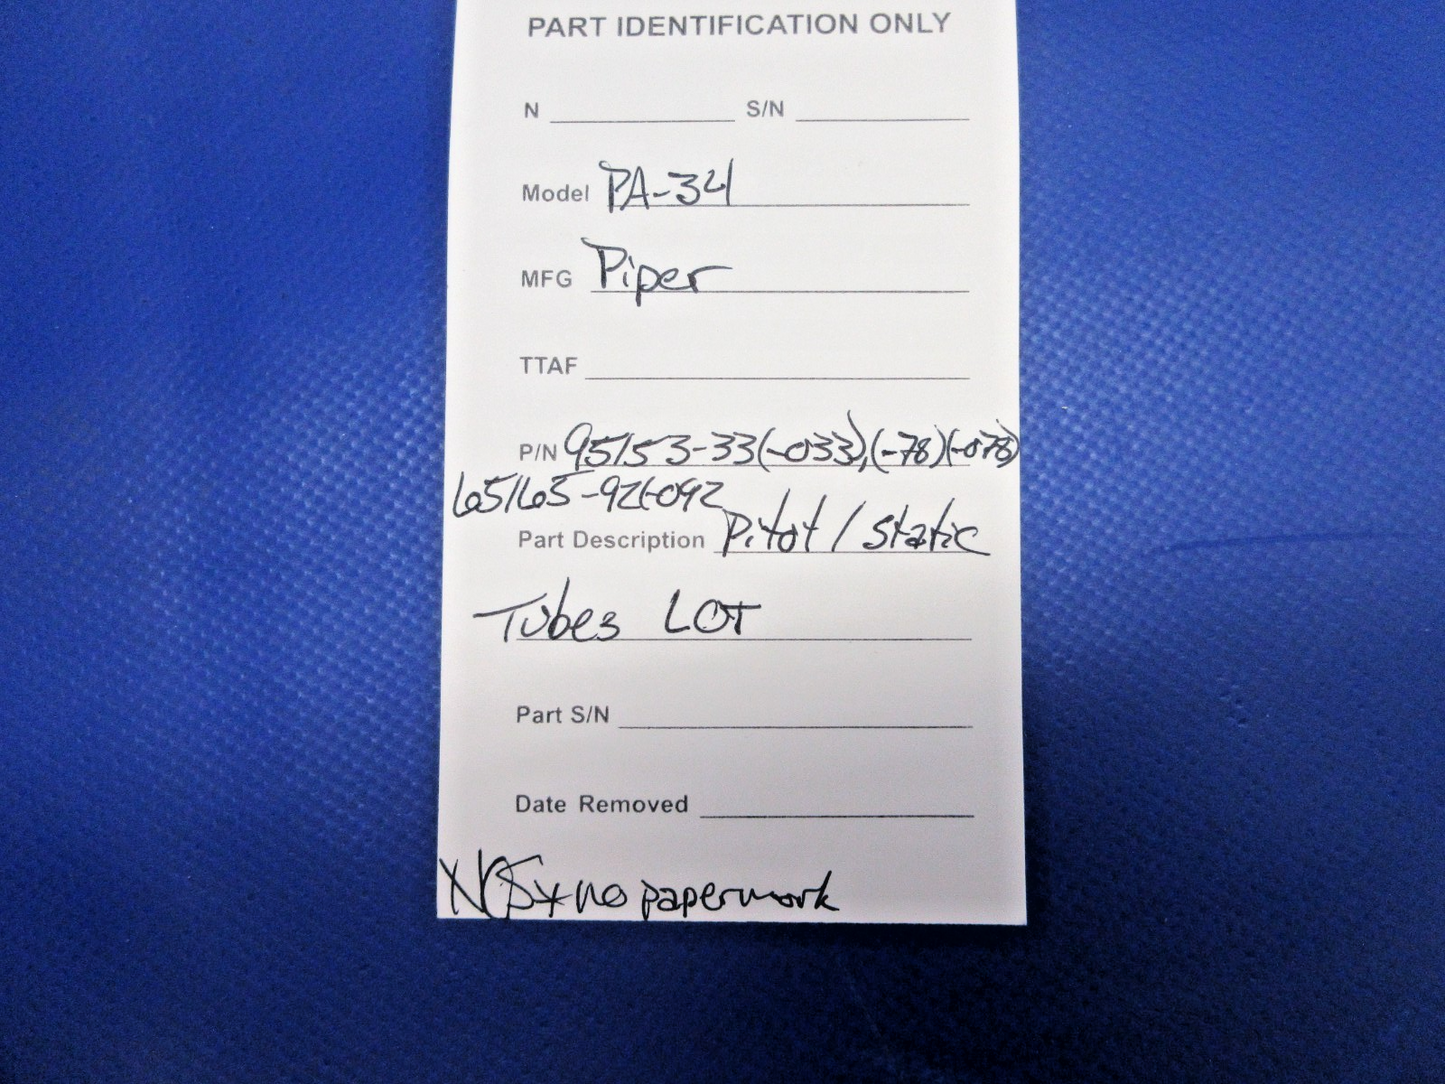 PART IDENTIFICATION ONLY
N S/N
Model PA-34
MFG Piper
TTAF
P/N 95153-33(-033),(-78)(-078)
65165-92(-092
Part Description Pitot / Static
Tubes LOT
Part S/N
Date Removed
NOS + no paperwork